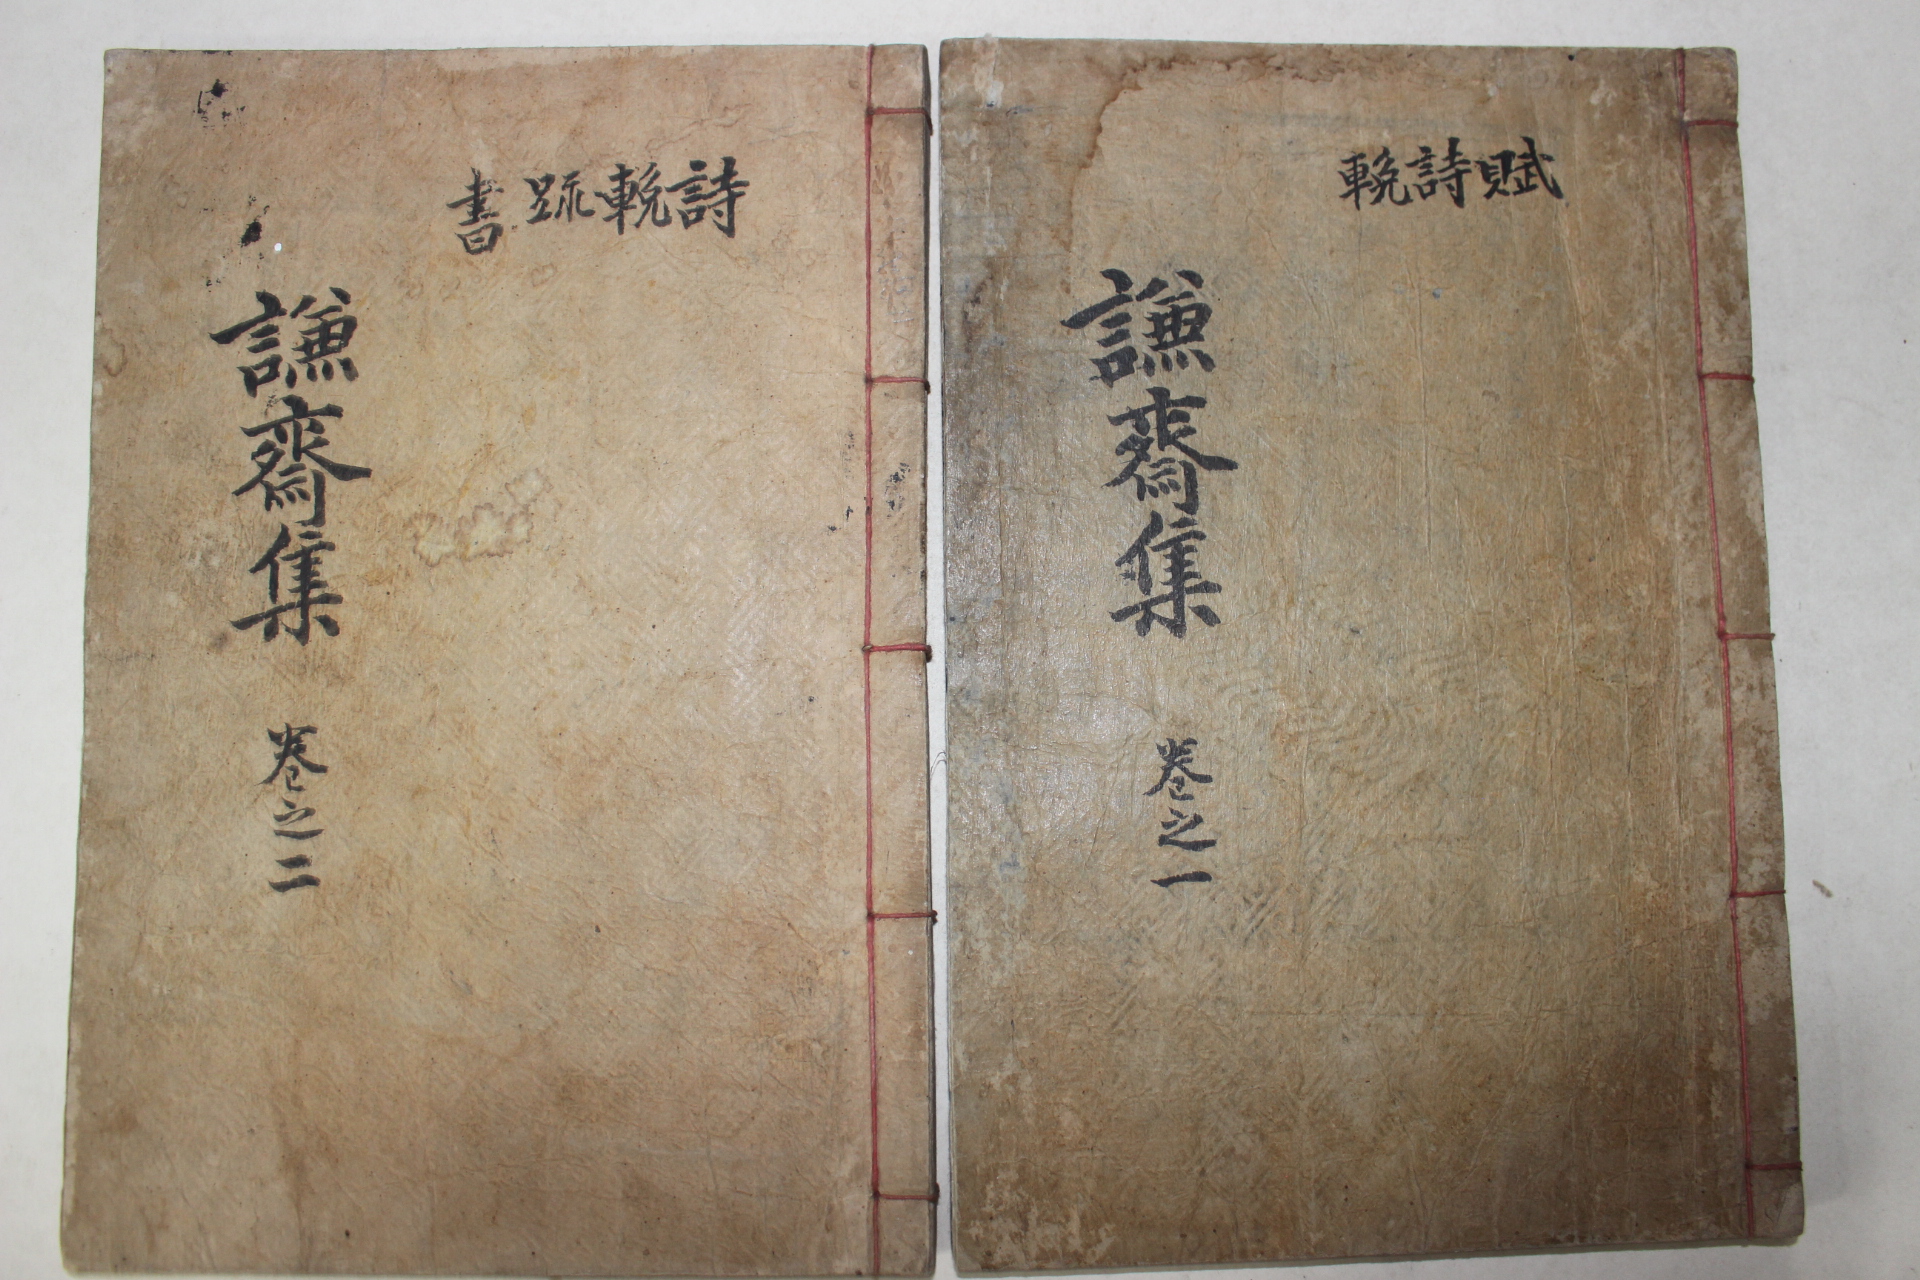 賦詩輓
謙齋集
卷之一
詩輓疏書
謙齋集
卷之二